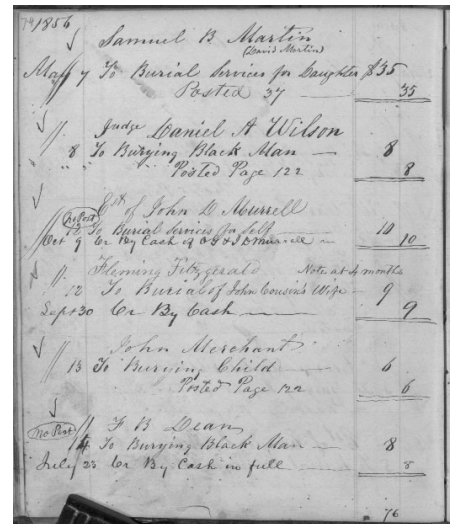 74 1856
Samuel B Martin
(David Martin)
May 7 To Burial Services for Daughter $35
Posted 37 — 35
" Judge Daniel A Wilson
" 8 To Burying Black Man — 8
" " Posted Page 122 8
Est of John D Murrell
No Post 12 To Burial Services for Self 10
Oct 9 Cr By Cash of & J D Murrell 10
" Fleming Fitzgerald Note at 4 months
12 To Burial of John Cousin's Wife — 9
Sept 30 Cr By Cash — 9
" John Merchant
" 13 To Burying Child 6
Posted Page 122 6
No Post " F B Dean
To Burying Black Man — 8
July 23 Cr By Cash in full — 8
76